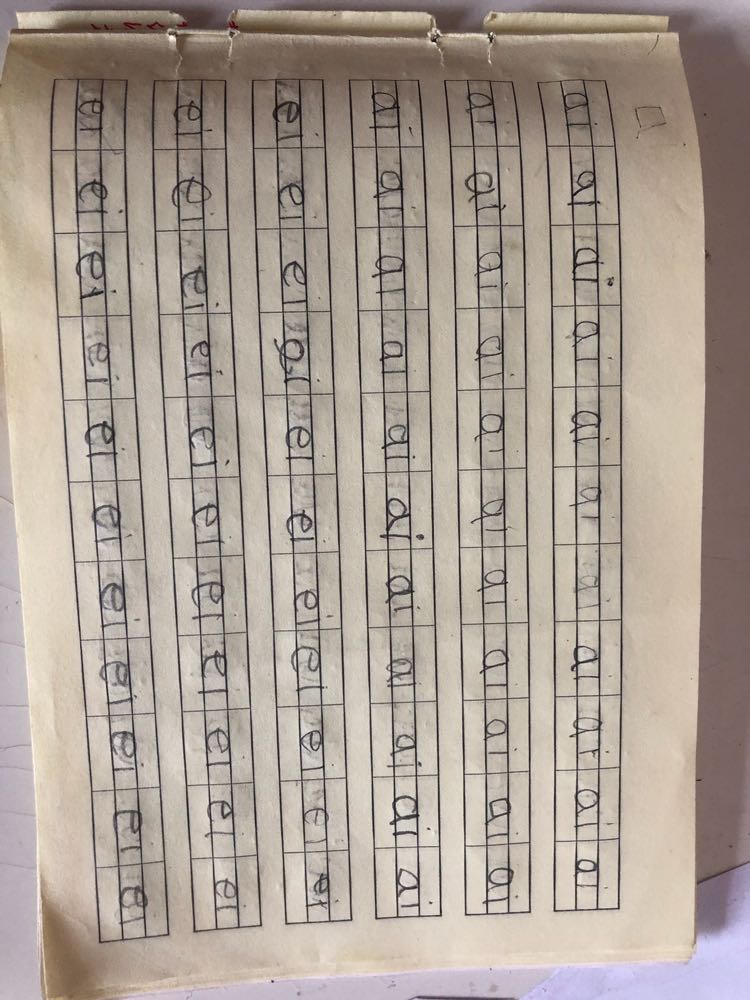 ai ai ai ai ai ai ai ai ai ai ai
ai ai ai ai ai ai ai ai ai ai ai
ai ai ai ai ai ai ai ai ai ai ai
ei ei ei ei ei ei ei ei ei ei ei
ei ei ei ei ei ei ei ei ei ei ei
ei ei ei ei ei ei ei ei ei ei ei